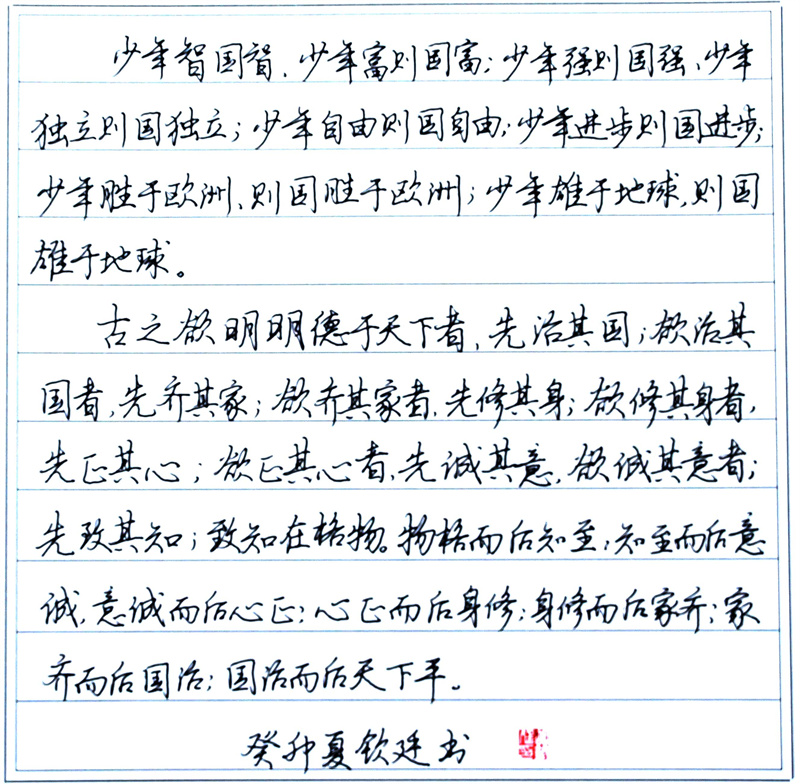 少年智国智、少年富则国富；少年强则国强、少年
独立则国独立；少年自由则国自由；少年进步则国进步；
少年胜于欧洲、则国胜于欧洲；少年雄于地球，则国
雄于地球。
古之欲明明德于天下者，先治其国；欲治其
国者，先齐其家；欲齐其家者，先修其身；欲修其身者，
先正其心；欲正其心者，先诚其意，欲诚其意者；
先致其知；致知在格物。物格而后知至；知至而后意
诚，意诚而后心正；心正而后身修；身修而后家齐；家
齐而后国治；国治而后天下平。
癸卯夏钦廷书